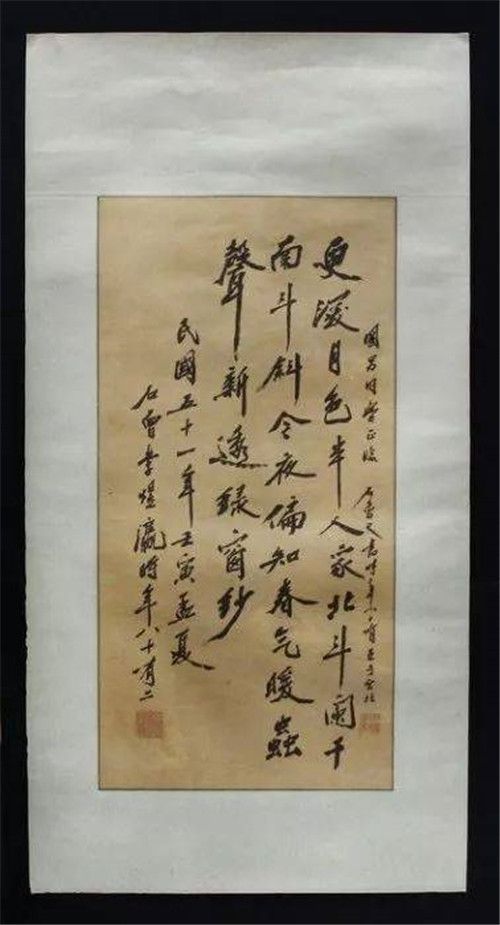 國昌同學正
石曾又書時年八十有
更深月色半人家北斗闌干
南斗斜今夜偏知春氣暖蟲
聲新透綠窗紗
民國五十一年壬寅孟夏
石曾李煜瀛時年八十有二